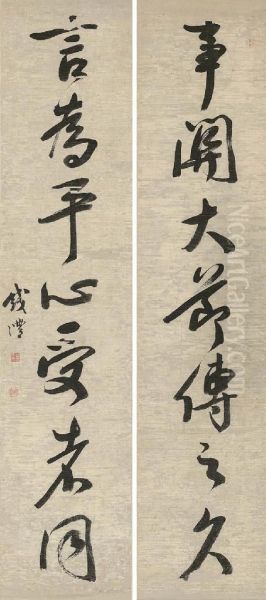 事關大節傳之久
言為平心受者同
錢灃
NiceArtGallery.com